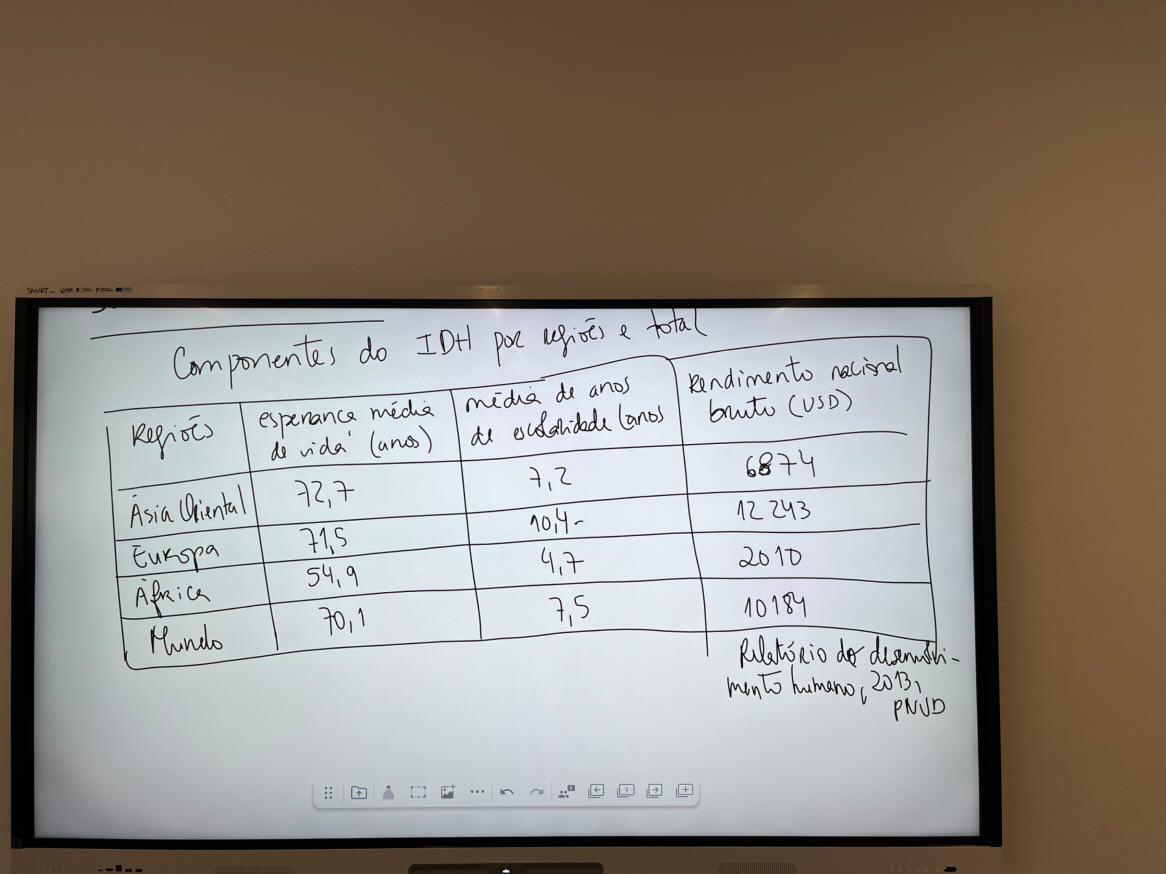 SMART
Componentes do IDH por regiões e total
Regiões
esperança média
de vida (anos)
média de anos
de escolaridade (anos
Rendimento nacional
bruto (USD)
Ásia Oriental 72,7 7,2 6874
Europa 71,5 10,4- 12 243
África 54,9 4,7 2010
Mundo 70,1 7,5 10184
Relatório do desenvolvi-
mento humano, 2013,
PNUD
1